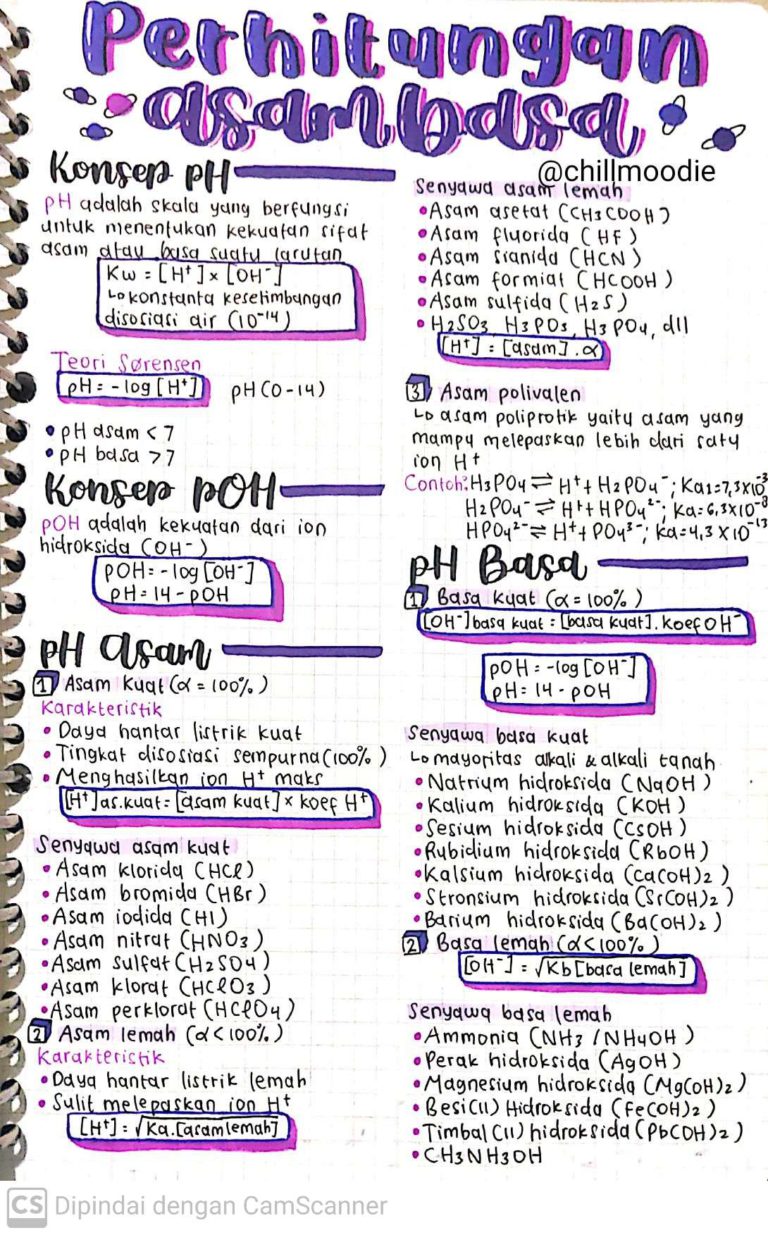 Perhitungan
asam basa
@chillmoodie
Konsep pH
pH adalah skala yang berfungsi
untuk menentukan kekuatan sifat
asam atau basa suatu larutan
Kw = [H⁺] x [OH⁻]
↳ konstanta kesetimbangan
disosiasi air (10⁻¹⁴)
Teori Sørensen
pH = -log [H⁺] pH (0-14)
• pH asam < 7
• pH basa > 7
Konsep pOH
pOH adalah kekuatan dari ion
hidroksida (OH⁻)
pOH = -log [OH⁻]
pH = 14 - pOH
pH asam
1 Asam Kuat (α = 100%)
Karakteristik
• Daya hantar listrik kuat
• Tingkat disosiasi sempurna (100%)
• Menghasilkan ion H⁺ maks
[H⁺]as.kuat = [asam kuat] x koef H⁺
Senyawa asam kuat
• Asam klorida (HCl)
• Asam bromida (HBr)
• Asam iodida (HI)
• Asam nitrat (HNO₃)
• Asam sulfat (H₂SO₄)
• Asam klorat (HClO₃)
• Asam perklorat (HClO₄)
2 Asam lemah (α < 100%)
Karakteristik
• Daya hantar listrik lemah
• Sulit melepaskan ion H⁺
[H⁺] = √Ka.[asam lemah]
Senyawa asam lemah
• Asam asetat (CH₃COOH)
• Asam fluorida (HF)
• Asam sianida (HCN)
• Asam formiat (HCOOH)
• Asam sulfida (H₂S)
• H₂SO₃, H₃PO₃, H₃PO₄, dll
[H⁺] = [asam] . α
3 Asam polivalen
↳ asam poliprotik yaitu asam yang
mampu melepaskan lebih dari satu
ion H⁺
Contoh: H₃PO₄ ⇌ H⁺ + H₂PO₄⁻ ; Ka₁=7,3x10⁻³
H₂PO₄⁻ ⇌ H⁺ + HPO₄²⁻ ; Ka=6,3x10⁻⁸
HPO₄²⁻ ⇌ H⁺ + PO₄³⁻ ; Ka=4,3x10⁻¹³
pH Basa
1 Basa kuat (α = 100%)
[OH⁻]basa kuat = [basa kuat] . koef OH⁻
pOH = -log [OH⁻]
pH = 14 - pOH
Senyawa basa kuat
↳ mayoritas alkali & alkali tanah
• Natrium hidroksida (NaOH)
• Kalium hidroksida (KOH)
• Sesium hidroksida (CsOH)
• Rubidium hidroksida (RbOH)
• Kalsium hidroksida (Ca(OH)₂)
• Stronsium hidroksida (Sr(OH)₂)
• Barium hidroksida (Ba(OH)₂)
2 Basa lemah (α < 100%)
[OH⁻] = √Kb [basa lemah]
Senyawa basa lemah
• Ammonia (NH₃ / NH₄OH)
• Perak hidroksida (AgOH)
• Magnesium hidroksida (Mg(OH)₂)
• Besi(II) Hidroksida (Fe(OH)₂)
• Timbal (II) hidroksida (Pb(OH)₂)
• CH₃NH₃OH
CS Dipindai dengan CamScanner